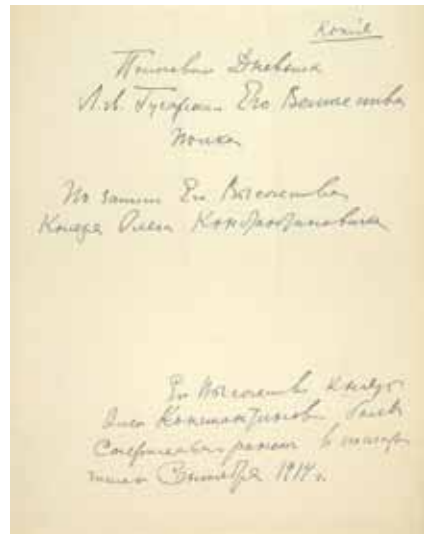 Копiя
Полковой Дневникъ
Л.-гв. Гусарскаго Его Величества
Полка
По записи Его Высочества
Князя Олега Константиновича
Его Высочество Князь
Олегъ Константиновичъ былъ
Смертельно раненъ въ
Сентября 1914 г.